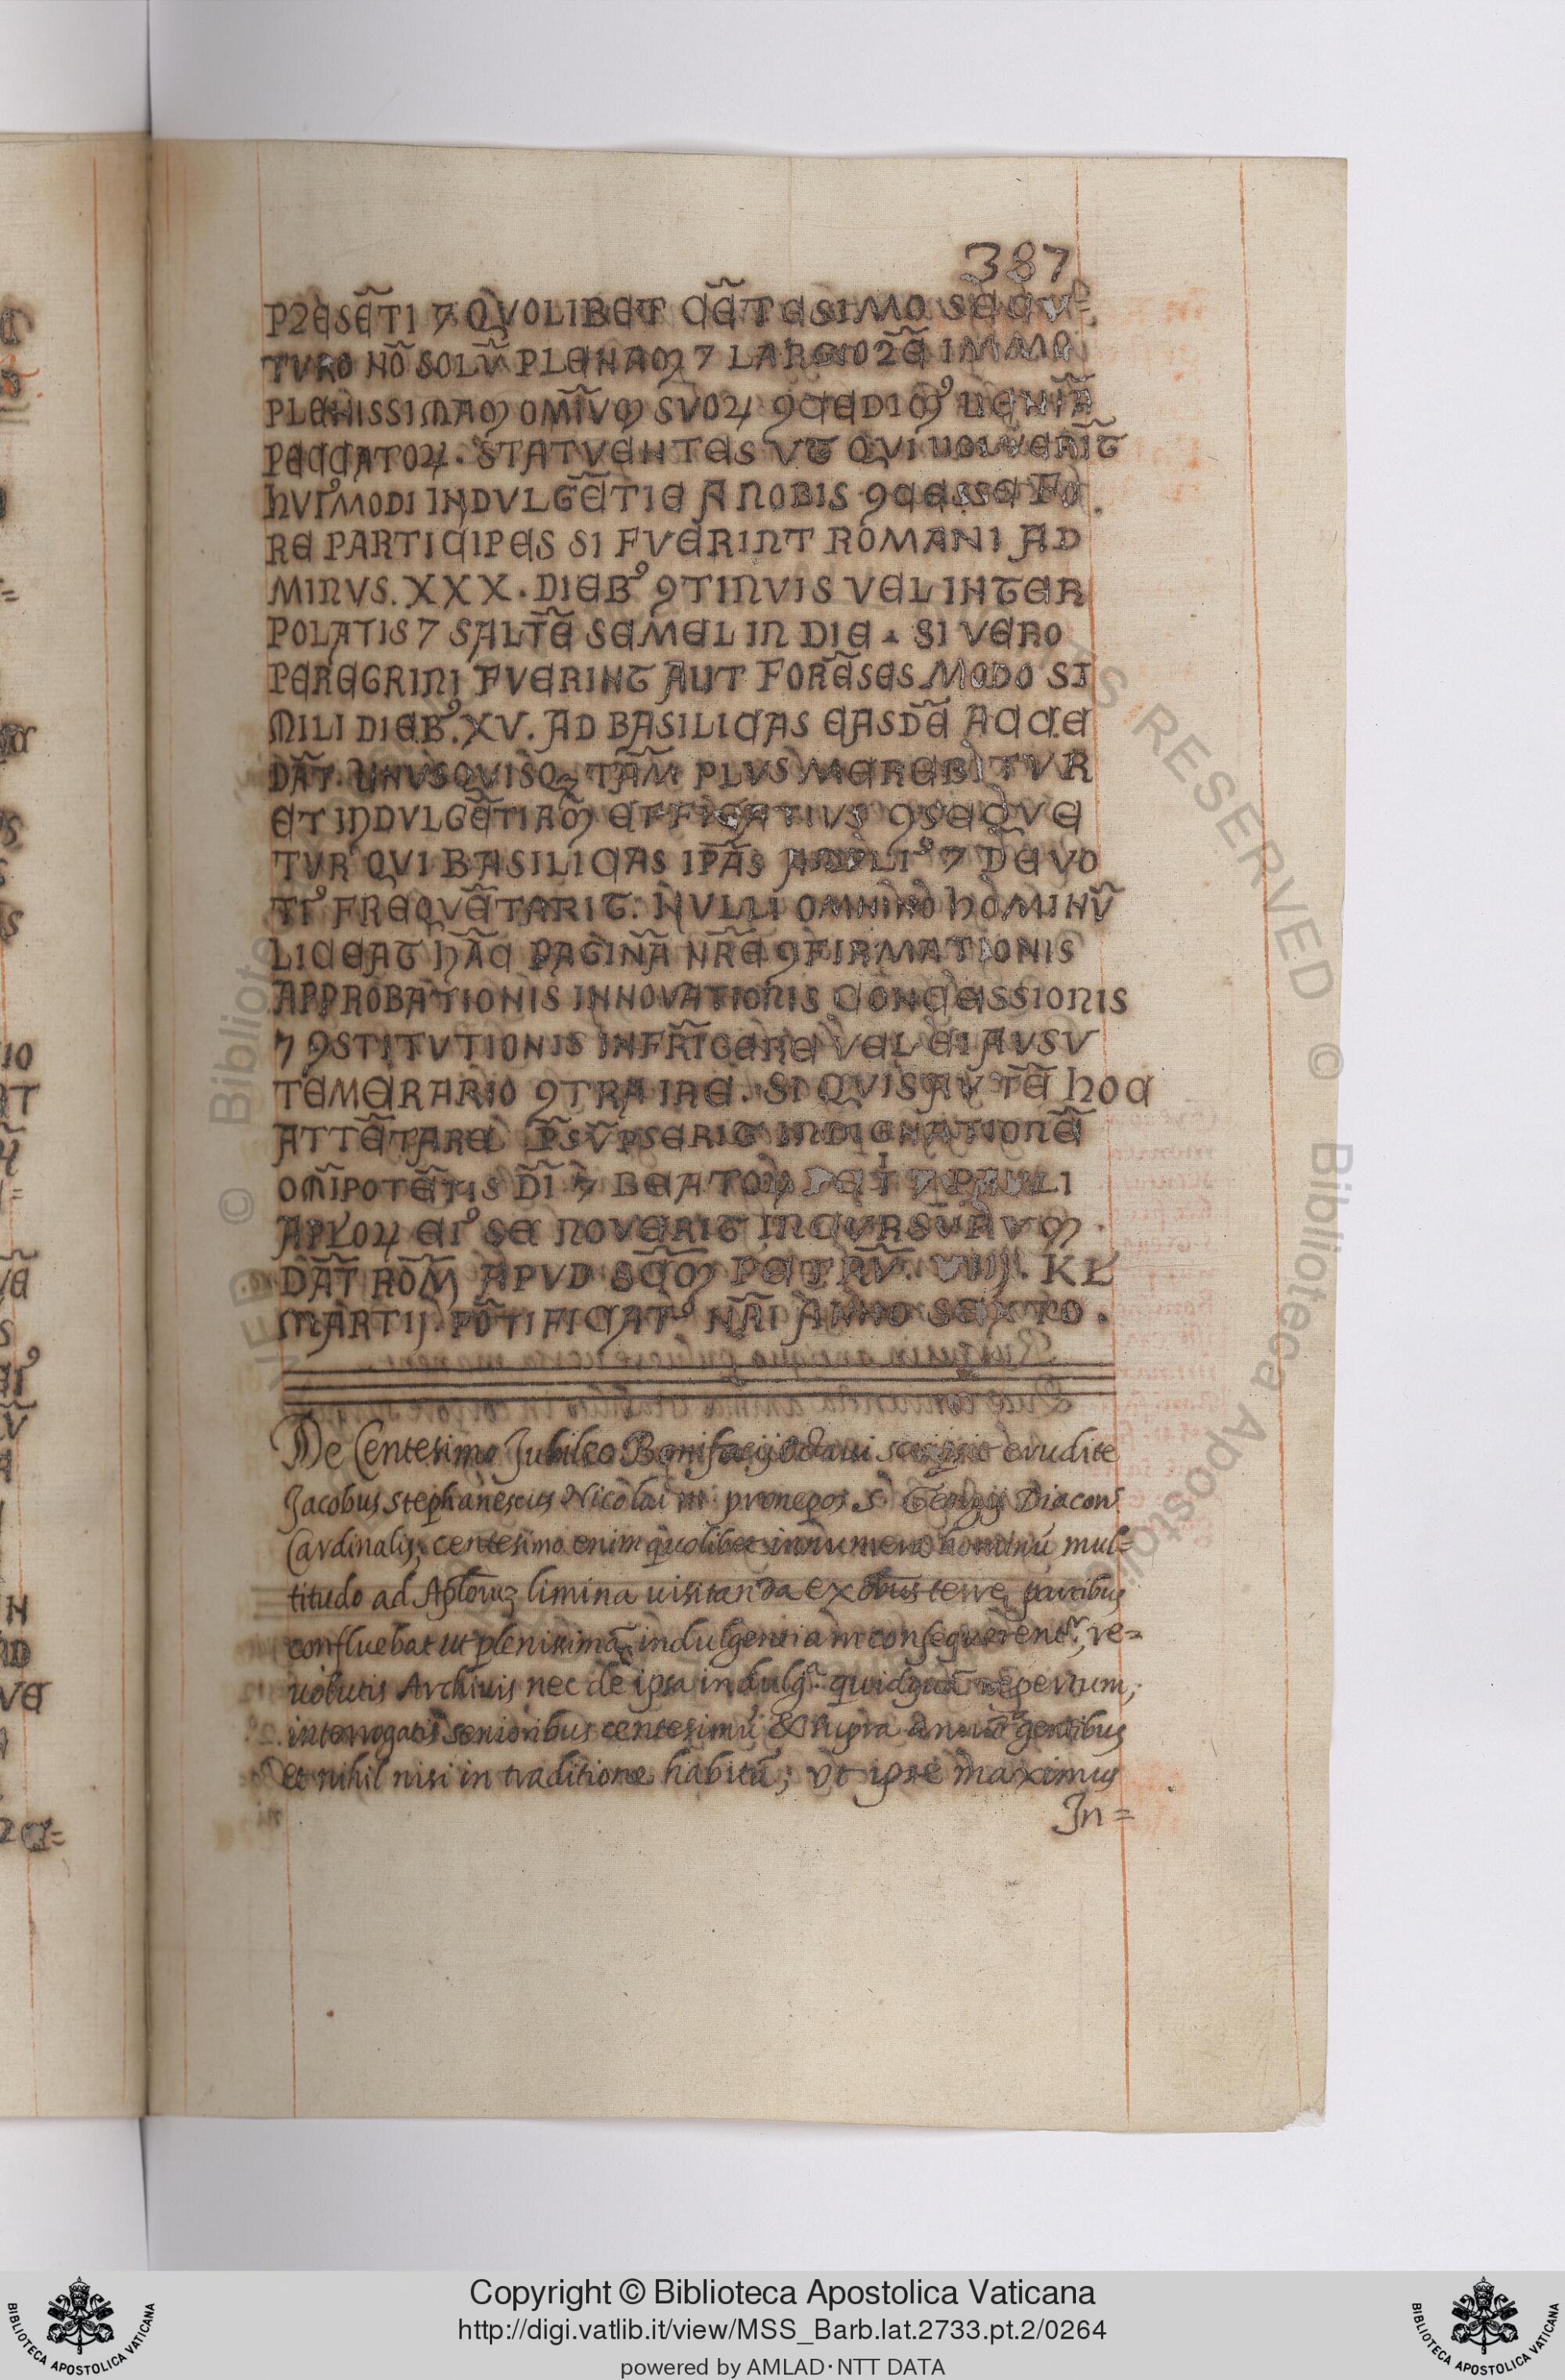 387
P2ESẼTI ⁊ QVOLIBET CẼTESIMO SECV=
TVRO NÕ SOLṼ PLENAM ⁊ LARGIO2Ẽ IMMO
PLENISSIMAM OMĨVM SVOꝜ ꝯCEDIMꝰ UENIÃ
PECCATOꝜ. STATVENTES VT QVI UOLVERĨT
hVIꝰMODI INDVLGẼTIE A NOBIS ꝯCESSE FO.
RE PARTICIPES SI FVERINT ROMANI AD
MINVS. XXX. DIEBꝰ ꝯTINVIS VEL INTER
POLATIS ⁊ SALTẼ SEMEL IN DIE. SI VERO
PEREGRINI FVERINT AUT FORẼSES MODO SI
MILI DIEBꝰ. XV. AD BASILICAS EASDẼ ACCE
DÃT. UNVSQVISQꝫ TÃM PLVS MEREBITVR
ET INDVLGẼTIAM EFFICATIVS ꝯSEQVE
TVR QVI BASILICAS IPÃS AMPLIꝰ ⁊ DEVO
TIꝰ FREQVẼTARIT. NVLLI OMNINO hOMINṼ
LICEAT hÃC PAGINÃ NR̃E ꝯFIRMATIONIS
APPROBATIONIS INNOVATIONIS CONCESSIONIS
⁊ ꝯSTITVTIONIS INFRĨGERE VEL EI AVSV
TEMERARIO ꝯTRAIRE. SI QVIS AVTẼ hOC
ATTẼTARE P̃SṼPSERIT INDIGNATIONẼ
OMĨPOTẼTIS DĨ ⁊ BEATOꝜ PETI ⁊ PAVLI
APLOꝜ EIꝰ SE NOVERIT INCVRSVRVM.
DÃT ROM̃ APVD SC̃M PETRṼ. VIIIJ. KŁ
MARTIJ. PÕTIFICATꝰ NR̃I ANNO SEXTO.
De Centesimo Jubileo Bonifacij Octaui scripsit erudite
Jacobus Stephanescus Nicolai iii pronepos S. Georgij Diaconꝰ
Cardinalis, centesimo enim quolibet innumera hominũ mul=
titudo ad Apl̃oruꝫ limina uisitanda ex õbus terre partibus
confluebat ut plenissimã indulgentiam consequerentr, re=
uolutis Archiuis nec de ipsa indulg.a quidquã repertum;
interrogatis senioribus centesimũ & supra annũ gentibus
et nihil nisi in traditione habitũ; Vt ipse maximus
Jn=
Copyright © Biblioteca Apostolica Vaticana
http://digi.vatlib.it/view/MSS_Barb.lat.2733.pt.2/0264
powered by AMLAD·NTT DATA